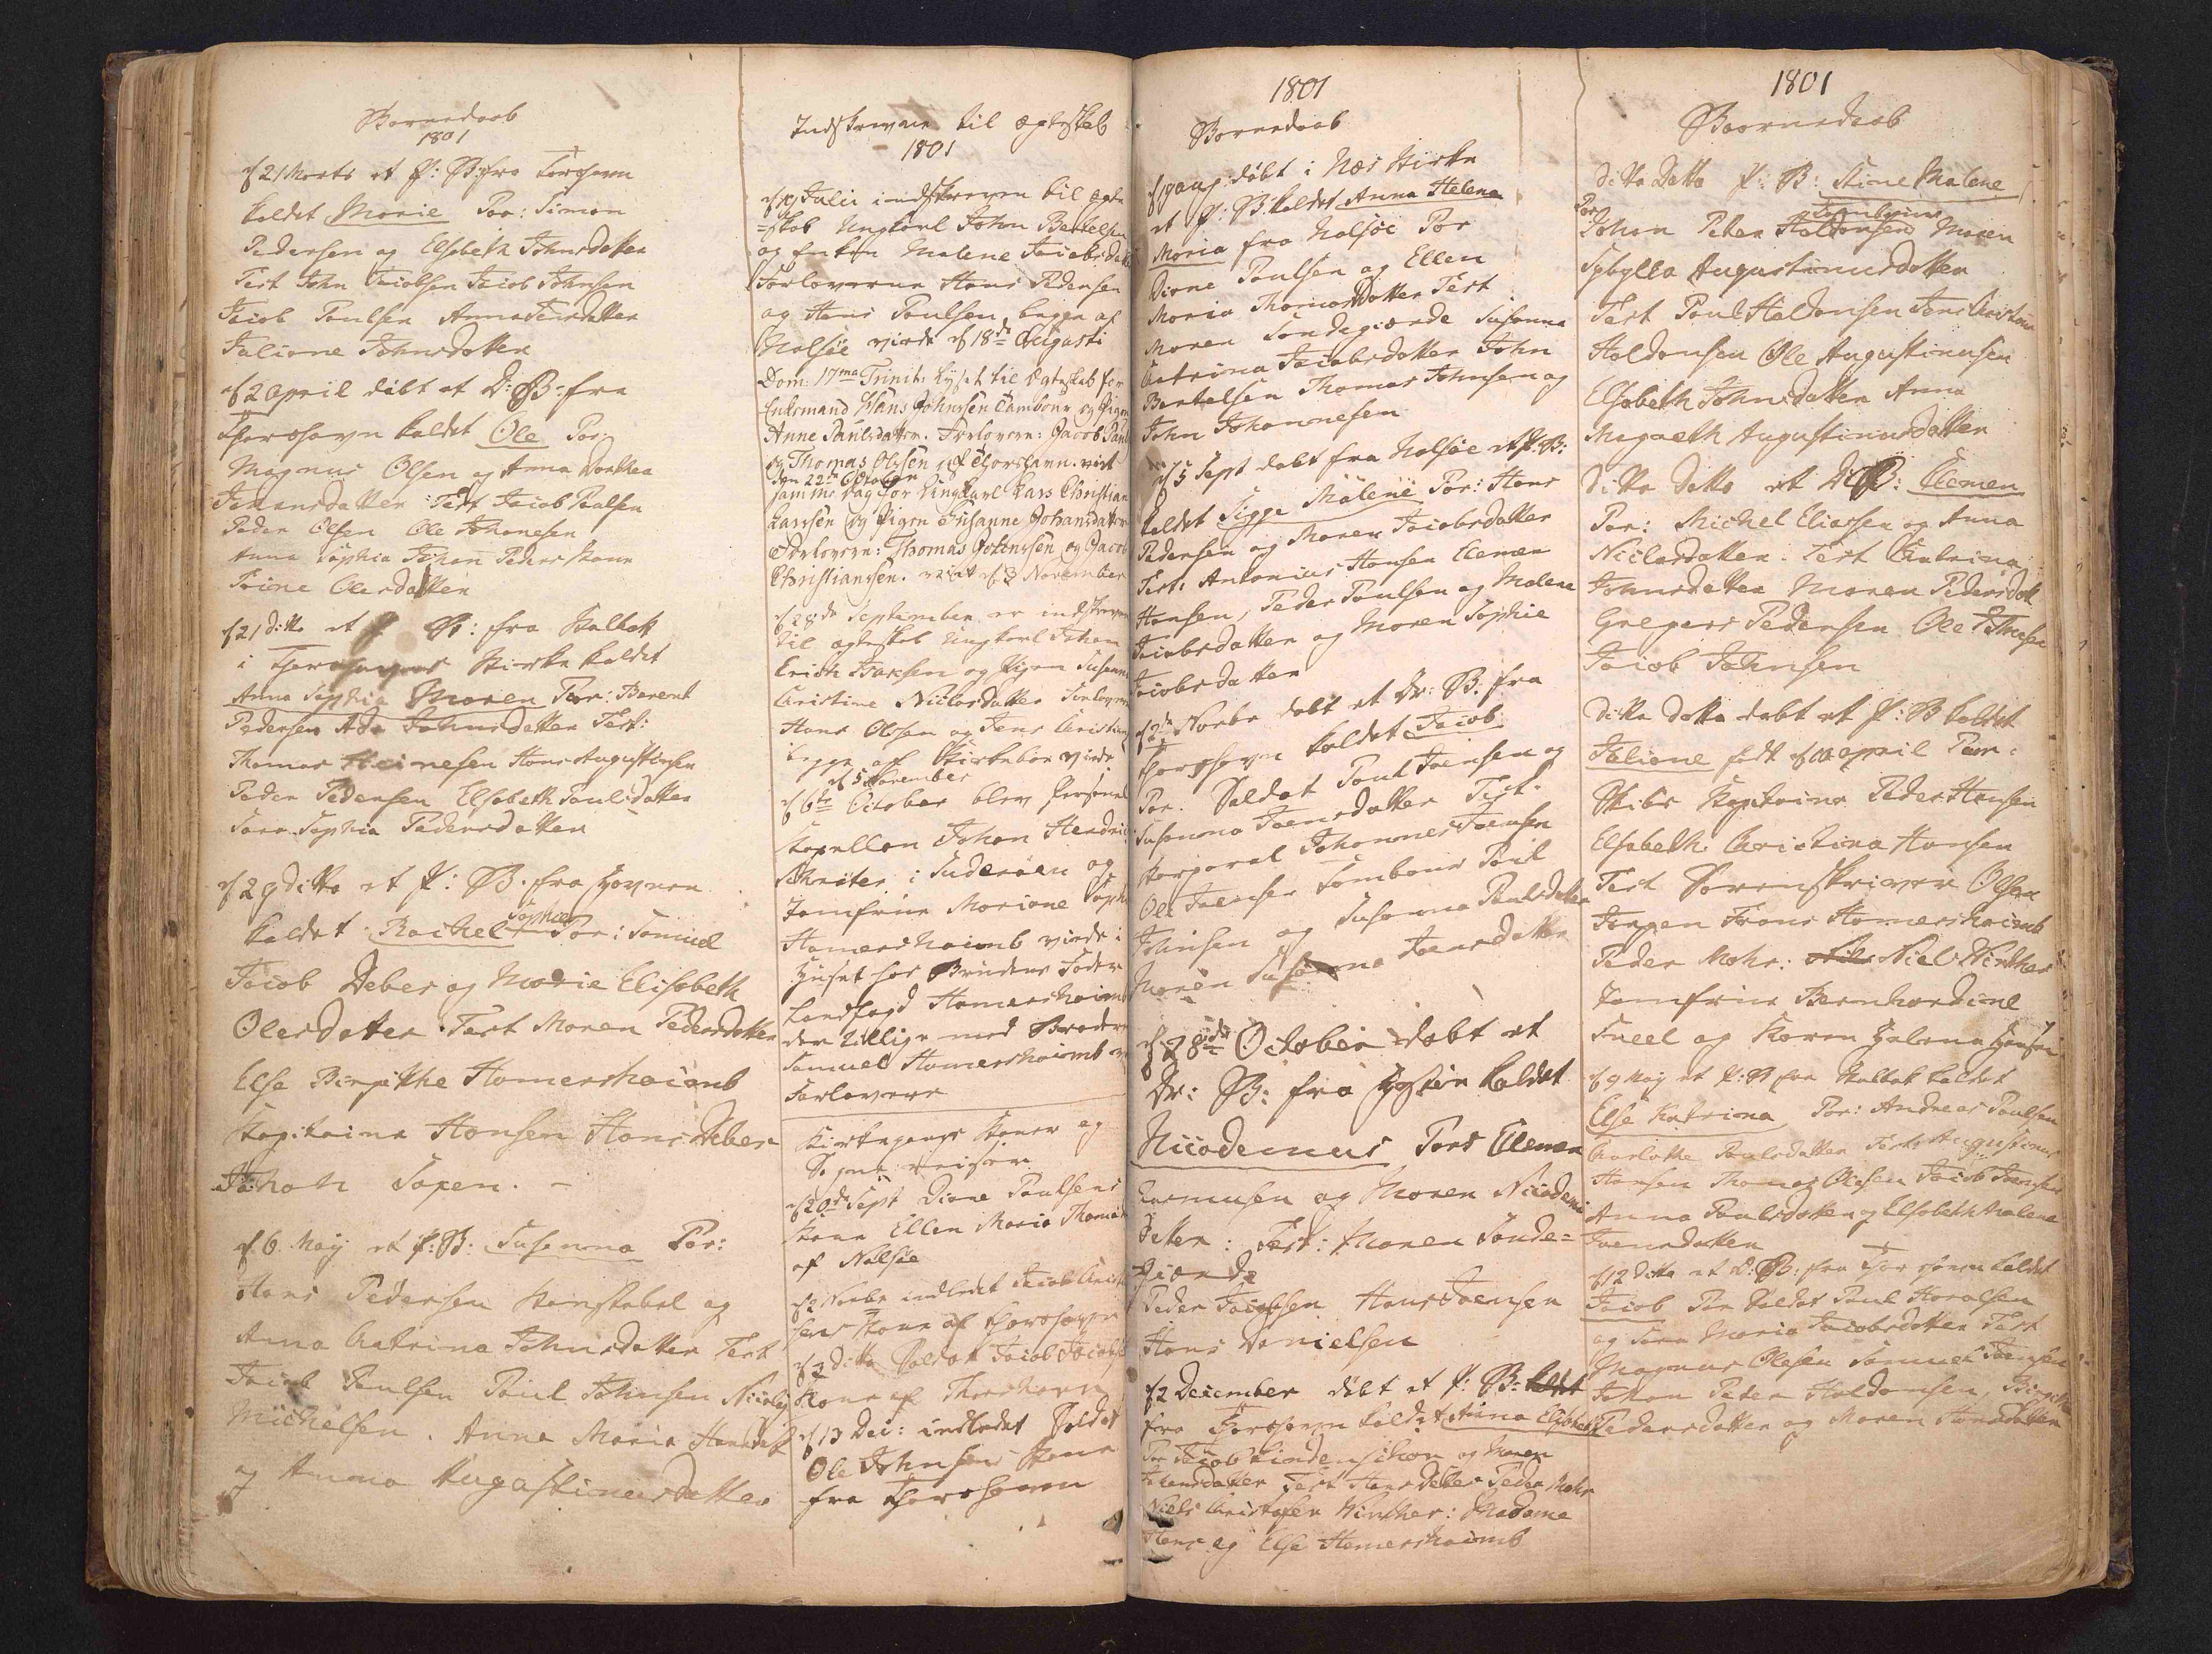 Børnedaab
1801
d 21 Marts et P: B: fra Torshavn
kaldet Marie Par: Simon
Pedersen og Elsebeth Johnsdatter
Test John Jacobsen Jacob Johnsen
Jacob Poulsen Anna Jensdatter
Juliane Johnsdatter
d 2 April døbt et D: B: fra
Thorshavn kaldet Ole Par:
Magnus Olsen og Anna Dorthea
Test Jacob Poulsen
Peder Olsen Ole Johanesen
Anna Sophia Johan Peders Kone
Trine Olesdatter
d 21 ditto et P B: fra Kalbak
i Thorshavns Kirke kaldet
Anna Sophia Maren Par: Berent
Pedersen Ada Johnsdatter Test:
Thomas Heinesen Hans Augustinsen
Peder Pedersen Elsebeth Poulsdatter
Sara Sophia Pedersdatter
d 29 ditto et P: B. fra
kaldet Rachel Sophia Par: Samuel
Jacob Debes og Marie Elisabeth
Olesdatter. Test Maren Pedersdatter
Else Birgitthe Hamershaimb
Kapitaine Hansen Hans Debes
Johan
d 6. Maij et P: B: Susanna Par:
Hans Pedersen Konstabel og
Anna Catrina Johnsdatter Test
Jacob Poulsen Poul Johnsen Nicolaj
Michelsen. Anna Maria Hansdatt
og Anna Augustinusdatter
Indskrevne til Ægteskab
1801
Julii indskreven til Ægte
=skab Ungkarl John Bertelsen
og Enken Malene Jacobsdatter
Forloverne Hans Pedersen
og Hans Poulsen begge af
Nolsöe viede d 18de Augusti
Dom: 17ma Trinit: lyst til Ægteskab for
Enkemand Hans Johnssen Tambour og Pigen
Anne Paulsdatter. Forlovere: Jacob Paul
og Thomas Olssen af Thorshavn. viet
den 22de October
samme dag for Ungkarl Lars Christian
Larssen og Pigen Susanne Johansdatter
Forlovere: Thomas Johnssen og Jacob
Christianssen. viet d 3 November
d 28de September er indskreven
til Ægteskab Ungkarl Johan
Erich Isaksen og Pigen Susanna
Christine Niclasdatter Forlovere
Hans Olsen og Jens Christian
begge af Kirkebøe viede
d 5 November
d 6te October blev Personel
Kapellan Johan Hendrich
Schrøter i Suderøen og
Jomfrue Mariane Sophia
Hamershaimb viede i
Huset hos Brudens Fader
Landfogd Hamershaimb
der tillige med Broderen
Samuel Hamershaimb er
Forlovere
Kirkegangs Koner og
d 20de Sept Diane Poulsens
Kone Ellen Maria Thomasd
af Nolsøe
d 2 Novbr indledet Jacob
sens Kone af Thorshavn
d 2 ditto Soldat Jacob Jacobs
Kone af Thorshavn
d 13 Dec: indledet Soldat
Ole Johnsens Kone
fra Thorshavn
1801
Børnedaab
aug: døbt i Næs Kirke
et P: B. kaldet Anna Helena
Maria fra Nolsöe Par
Diane Poulsen og Ellen
Maria Thomasdatter Test
Maren Sondegiærde Susanna
Catrina Jacobsdatter John
Bertelsen Thomas Johnsen og
John Johannesen
d 5 Sept døbt fra Nolsöe et P: B:
kaldet Sigge Malene Par: Hans
Pedersen og Maren Jacobsdatter
Test: Antonius Hansen Clemen
Hansen, Peder Poulsen og Malene
Jacobsdatter og Maren Sophie
Jacobsdatter
d 2de Novbr døbt et Dr: B. fra
Thorshavn kaldet Jacob
Par. Soldat Poul Joensen og
Susanna Joensdatter Test.
Korporal Johannes Joensen
Ole Joensen Tambour Poul
Johnsen og Susanna Poulsdatter
Maren Susanna Joensdatter
d 28de October døbt et
Dr: B: fra kaldet
Nicodemus Pars Clemen
Rasmusen og Maren Nicodemus
datter: Test: Maren Sonde=
giærde
Peder Jacobsen Hans Joensen
Hans Danielsen
d 2 December døbt et P: B: kaldet
fra Thorshavn kaldet Anna Elsebeth
Par Jacob Lindenschou og Maren
Johansdatter Test Hans Debes Peder Mohr
Niels Christofer Winther: Madame
Hans og Else Hamershaimb
1801
Børnedaab
ditto Datto P: B: Stine Malene
Par Tambour
Johan Peter Haldansen Maren
Sybylla Augustinusdatter
Test Poul Haldansen Jens Christian
Haldansen Ole Augustinusen
Elsebeth Johnsdatter Anna
Magreth Augustinusdatter
ditto datto et D: B: Clemen
Par: Michel Eliassen og Anna
Niclasdatter. Test Catrina
Johnsdatter Maren Pedersdatt
Gregers Pedersen Ole Johnsen
Jacob Johnsen
ditto datto døbt et P: B kaldet
Juliane født d 10 april Par:
Skibs Kapitaine Peder Hansen
Elsebeth Christina Hansen
Test Sorenskriver Olsen
Jørgen Frans Hamershaimb
Peder Mohr: Niels Winther
Jomfrue Bernhardine
og Karen Helena Hansen
d 9 Maj et P: B fra Kalbak kaldet
Else Katrina Par: Andreas Poulsen
Charlotte Poulsdatter Test: Augustinus
Hansen Thomas Olesen Jacob Joensen
Anna Poulsdatter og Elsebeth Malene
Joensdatter
d 12 ditto et D: B: fra Thorshavn kaldet
Jacob Par Soldat Poul Haralsen
og Sara Maria Jacobsdatter Test
Magnus Olesen Samuel Joensen
Johan Peter Haldansen, Birgitte
Pedersdatter og Maren Hansdatter